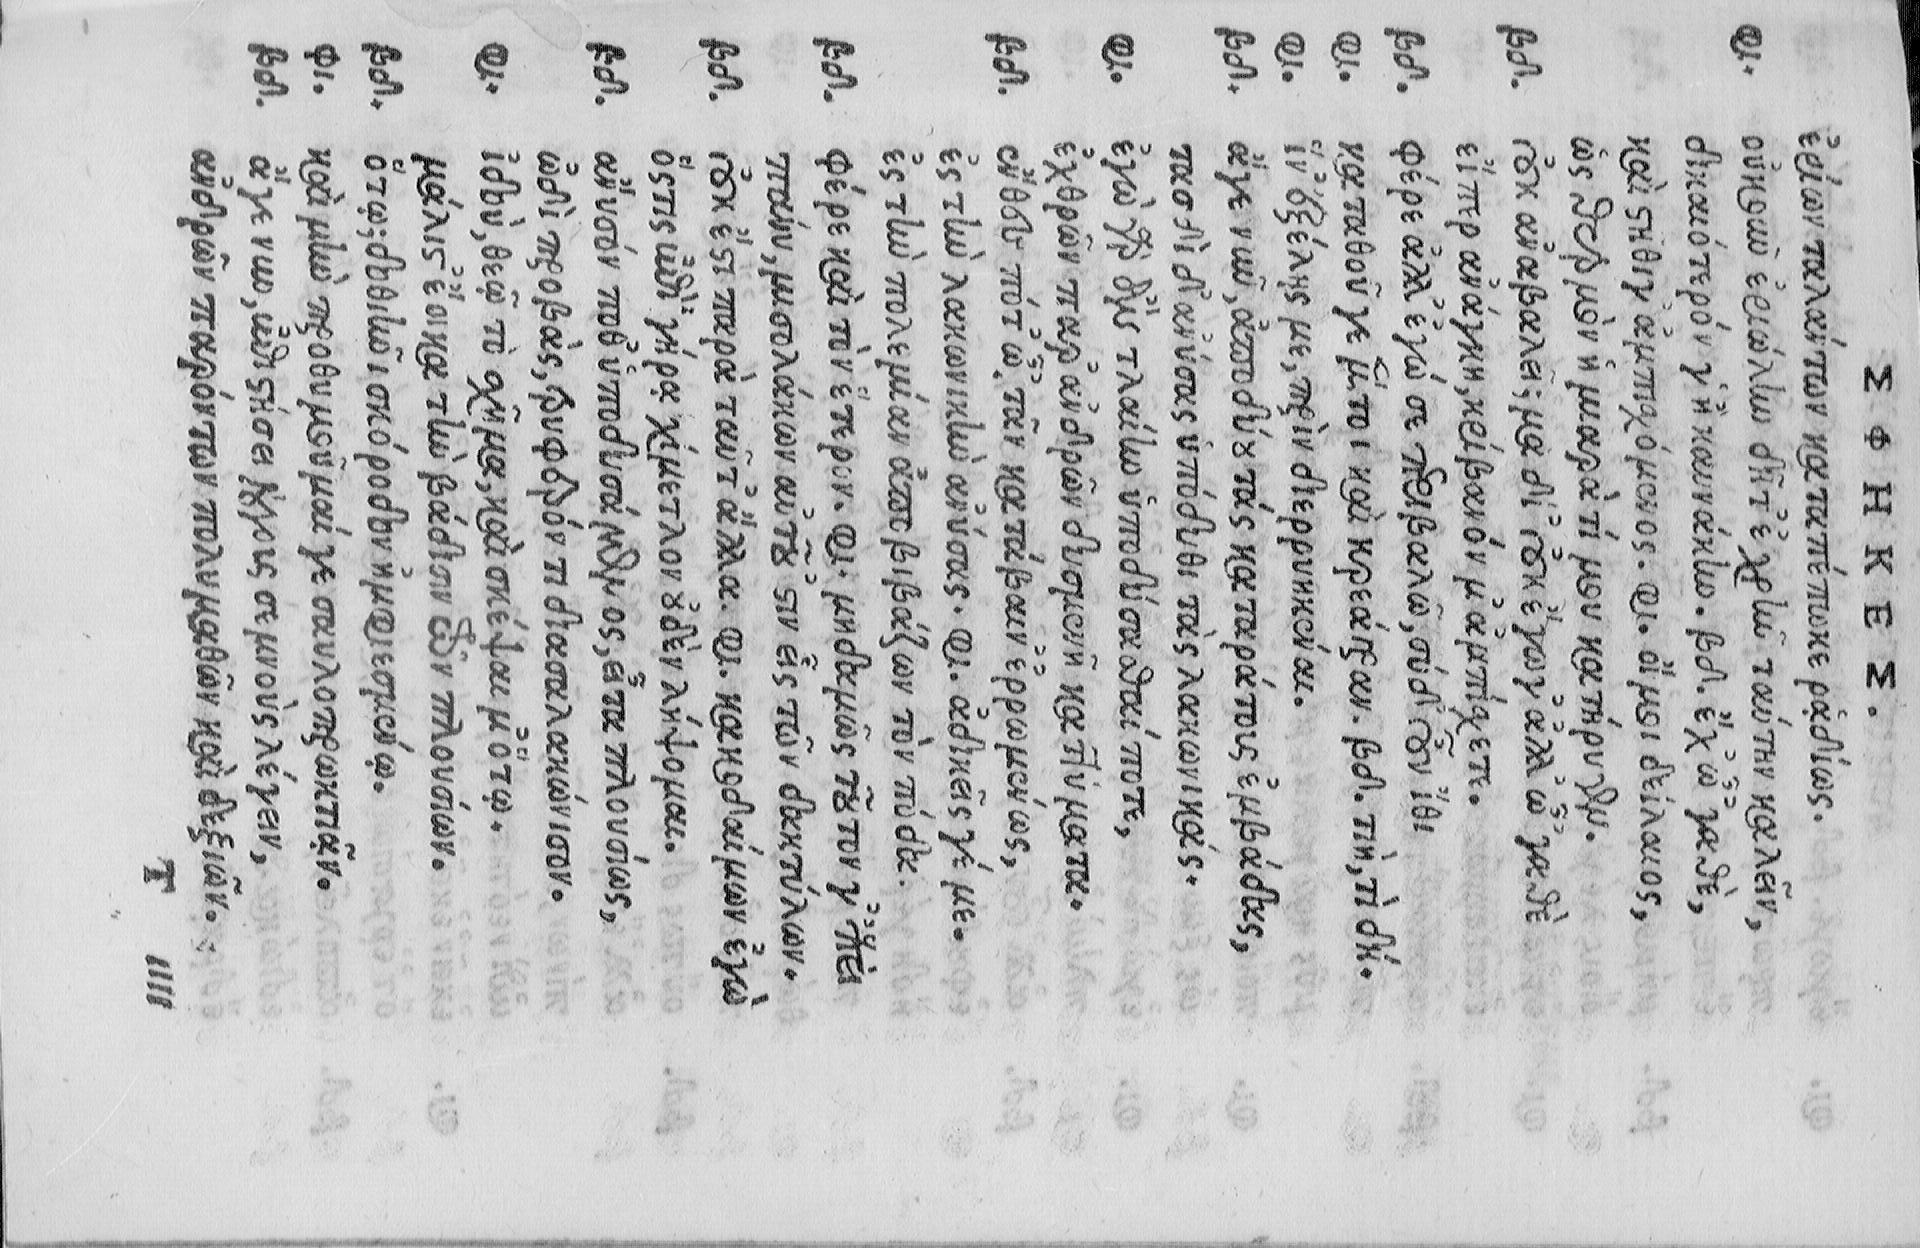 ΣΦΗΚΕΣ.
ἐρίων ταλάντων καταπέπωκε ῥᾳδίως.
φι. οὔκουν ἐριώλην δῆτ' ἐχρῆν ταύτην καλεῖν,
δικαιότερόν γ' ἢ καυνάκην. βδ. ἔχ' ὦ γαθὲ,
καὶ στῆθί γ' ἀμπισχόμενος. φι. οἴμοι δείλαιος,
ὡς θερμὸν ἡ μιαρὰ τί μου κατήρυγεν.
βδ. οὐκ ἀναβαλεῖ; μὰ δί' οὐκ ἔγωγ' ἀλλ' ὦ γαθὲ
εἴπερ ἀνάγκη, κρίβανόν μ' ἀμπίσχετε.
βδ. φέρε ἀλλ' ἐγώ σε περιβαλῶ, σὺ δ' οὖν ἴθι
φι. κατάθου γε μέντοι καὶ κρεάγραν. βδ. τιὴ, τί δή.
φι. ἵν' ἐξέλῃς με, πρὶν διερρυηκέναι.
βδ. ἄγε νυν, ἀποδύου τάς καταράτους ἐμβάδας,
τασδὶ δ' ἀνύσας ὑπόδυθι τὰς λακωνικάς.
φι. ἐγὼ γὰρ ἂν τλαίην ὑποδύσασθαί ποτε,
ἐχθρῶν παρ' ἀνδρῶν δυσμενῆ καττύματα.
βδ. ἔνθες ποτ' ὦ τᾶν κατάβαιν' ἐρρωμένως,
ἐς τὴν λακωνικὴν ἀνύσας. φι. ἀδικεῖς γέ με.
ἐς τὴν πολεμίαν ἀποβιβάζων τὸν πόδα.
βδ. φέρε καὶ τὸν ἕτερον. φι. μηδαμῶς τοῦτον γ' ἐπεὶ
πάνυ, μισολάκων αὐτοῦ στιν εἷς τῶν δακτύλων.
βδ. οὐκ ἔστι παρὰ ταῦτ' ἄλλα. φι. κακοδαίμων ἐγὼ
ὅστις ἐπὶ γήρᾳ χίμετλον οὐδὲν λήψομαι.
βδ. ἄνυσόν ποθ' ὑποδυσάμενος, εἶτα πλουσίως,
ὡδὶ προβὰς, τρυφερόν τι διασαλακώνισον.
φι. ἰδοὺ, θεῶ τὸ σχῆμα, καὶ σκέψαι μ' ὅτῳ.
μάλιστ' ἔοικα τὴν βάδισιν τῶν πλουσίων.
βδ. ὅτῳ; δοθιῆνι σκόροδον ἠμφιεσμένῳ.
φι. καὶ μὴν προθυμοῦμαί γε σαυλοπρωκτιᾶν.
βδ. ἄγε νυν, ἐπιστήσει λόγους σεμνοὺς λέγειν,
ἀνδρῶν παρόντων πολυμαθῶν καὶ δεξιῶν.
T iiii